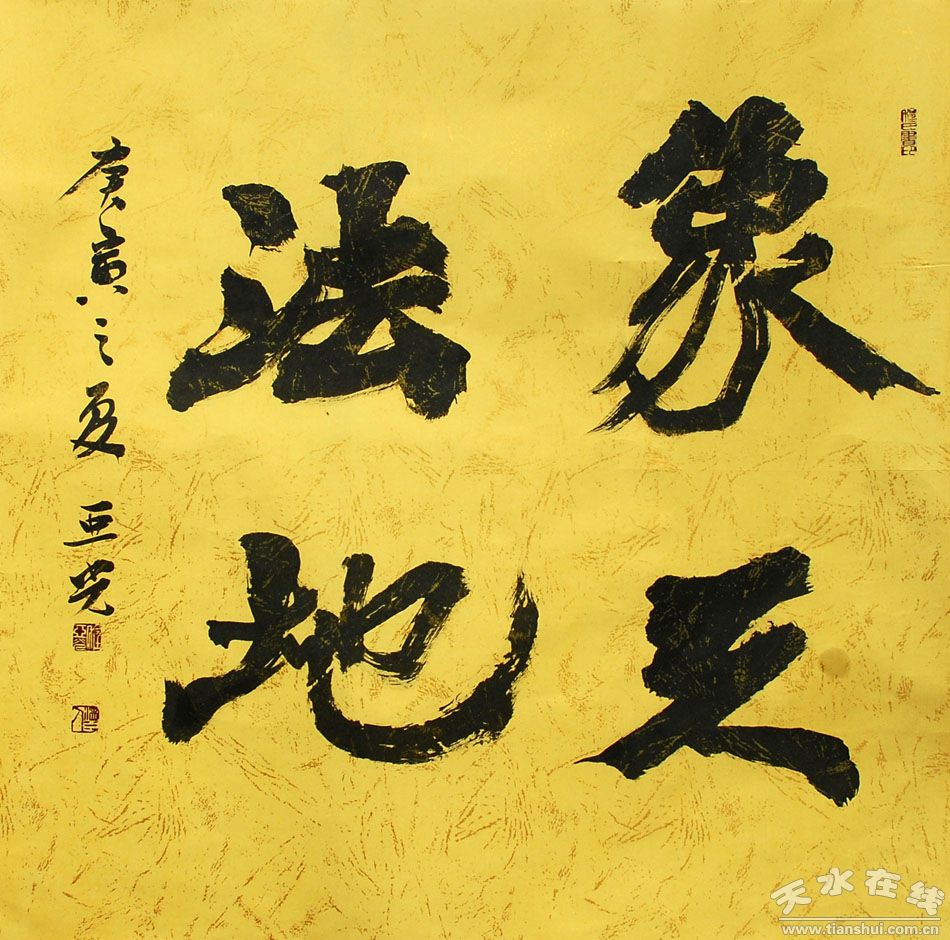 象天
法地
庚寅之夏 亚光
天水在线
www.tianshui.com.cn